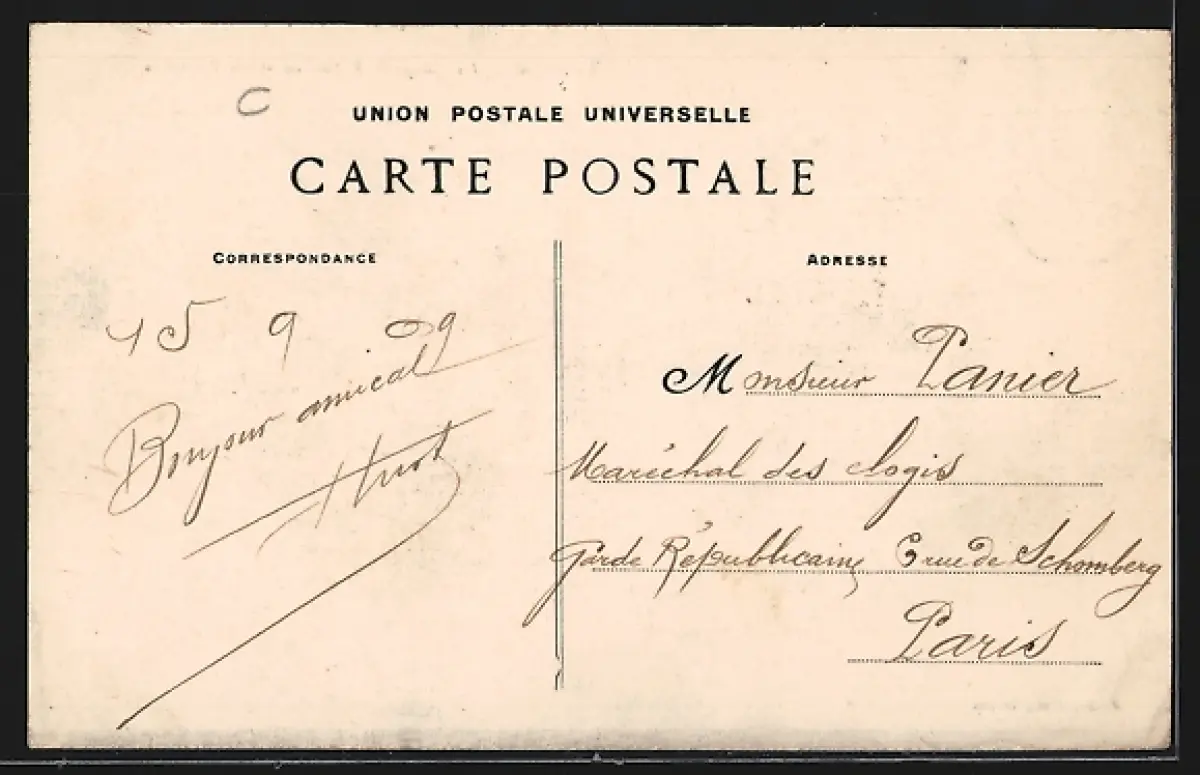 C
UNION POSTALE UNIVERSELLE
CARTE POSTALE
CORRESPONDANCE
15 9 09
Bonjour amical
Huot
ADRESSE
Monsieur Panier
Maréchal des logis
Garde Républicaine 6 rue de Schomberg
Paris